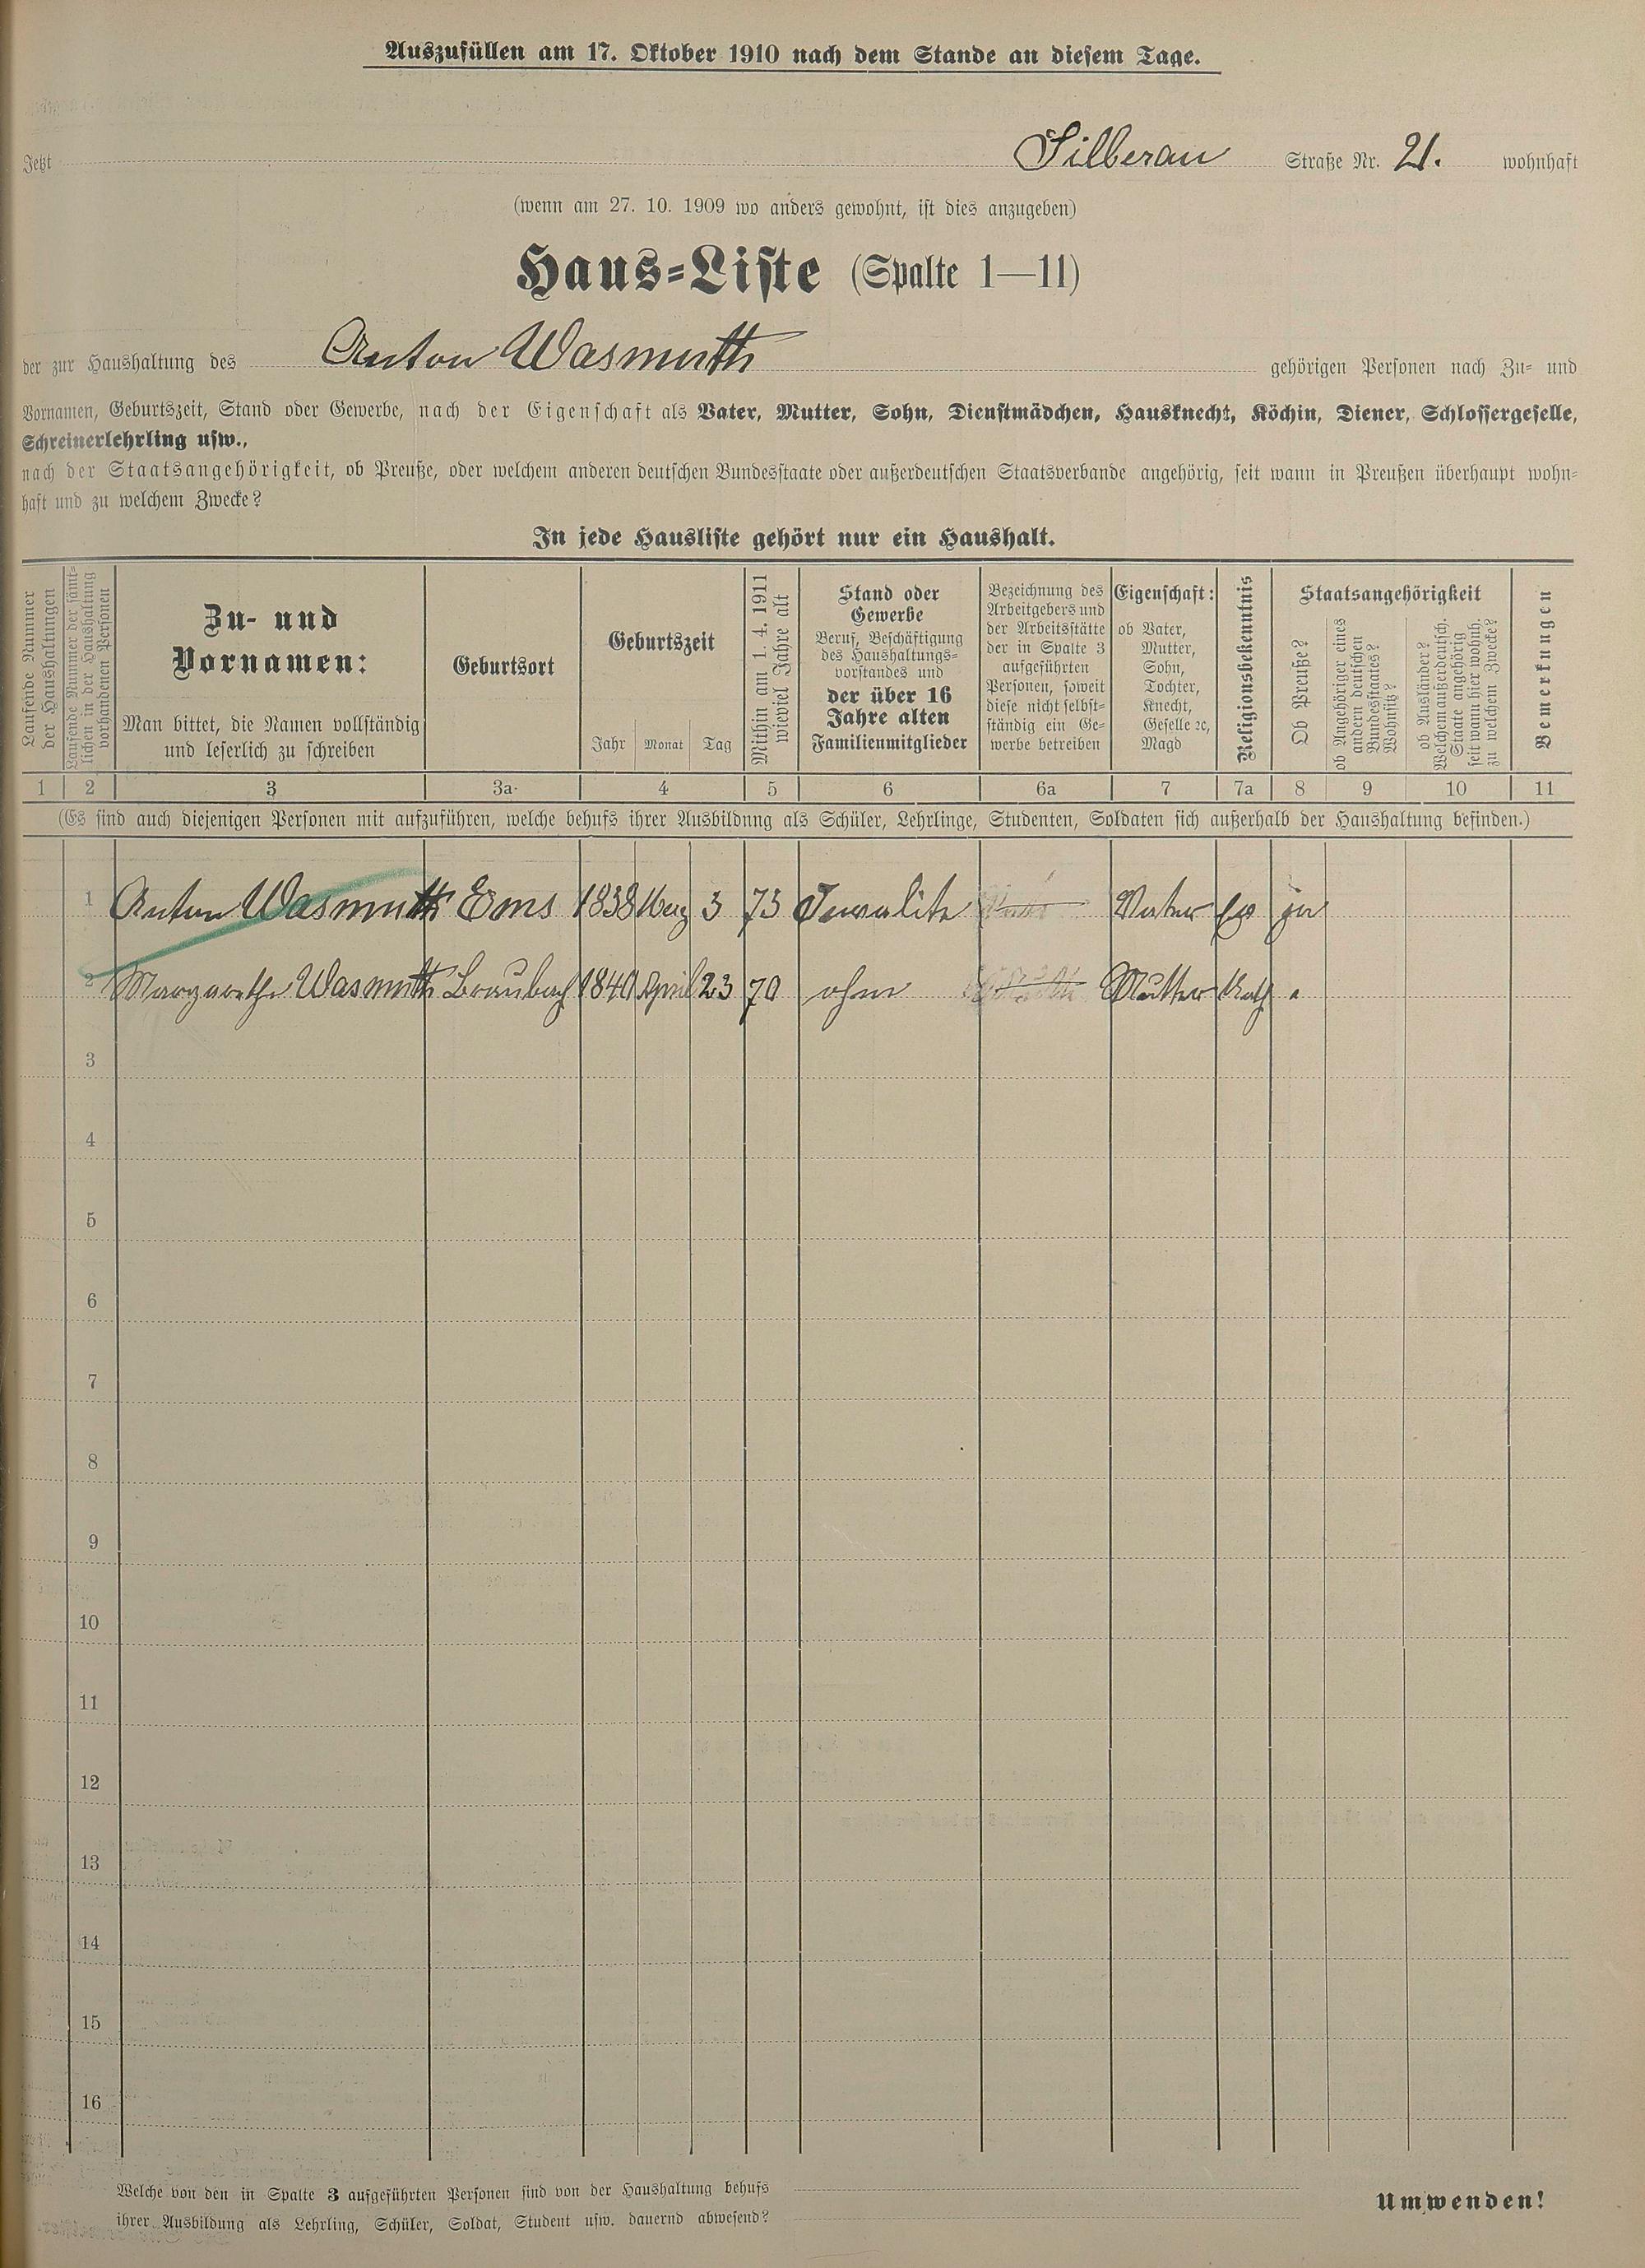 Auszufüllen am 17. Oktober 1910 nach dem Stande an diesem Tage.
Jetzt Silberau Straße Nr. 21. wohnhaft
(wenn am 27. 10. 1909 wo anders gewohnt, ist dies anzugeben)
Haus-Liste (Spalte 1—11)
der zur Haushaltung des Anton Wasmuth gehörigen Personen nach Zu- und
Vornamen, Geburtszeit, Stand oder Gewerbe, nach der Eigenschaft als Vater, Mutter, Sohn, Dienstmädchen, Hausknecht, Köchin, Diener, Schlossergeselle,
Schreinerlehrling usw.,
nach der Staatsangehörigkeit, ob Preuße, oder welchem anderen deutschen Bundesstaate oder außerdeutschen Staatsverbande angehörig, seit wann in Preußen überhaupt wohn-
haft und zu welchem Zwecke?
In jede Hausliste gehört nur ein Haushalt.
Laufende Nummer
der Haushaltungen
Laufende Nummer der sämt-
lichen in der Haushaltung
vorhandenen Personen
Zu- und
Vornamen:
Man bittet, die Namen vollständig
und leserlich zu schreiben
Geburtsort
Geburtszeit
Jahr Monat Tag
Mithin am 1. 4. 1911
wieviel Jahre alt
Stand oder
Gewerbe
Beruf, Beschäftigung
des Haushaltungs-
vorstandes und
der über 16
Jahre alten
Familienmitglieder
Bezeichnung des
Arbeitgebers und
der Arbeitsstätte
der in Spalte 3
aufgeführten
Personen, soweit
diese nicht selbst-
ständig ein Ge-
werbe betreiben
Eigenschaft:
ob Vater,
Mutter,
Sohn,
Tochter,
Knecht,
Geselle ec,
Magd
Religionsbekenntnis
Staatsangehörigkeit
Ob Preuße?
ob Angehöriger eines
andern deutschen
Bundesstaates?
Wohnsitz?
ob Ausländer?
Welchem außerdeutsch.
Staate angehörig
seit wann hier wohnh.
zu welchem Zwecke?
Bemerkungen
1 2 3 3a 4 5 6 6a 7 7a 8 9 10 11
(Es sind auch diejenigen Personen mit aufzuführen, welche behufs ihrer Ausbildung als Schüler, Lehrlinge, Studenten, Soldaten sich außerhalb der Haushaltung befinden.)
1 Anton Wasmuth Ems 1838 Merz 3 73 Invalite Vater ja
2 Margarethe Wasmuth Braubach 1840 April 23 70 ohne Mutter Kath "
3
4
5
6
7
8
9
10
11
12
13
14
15
16
Welche von den in Spalte 3 aufgeführten Personen sind von der Haushaltung behufs
ihrer Ausbildung als Lehrling, Schüler, Soldat, Student usw. dauernd abwesend?
Umwenden!